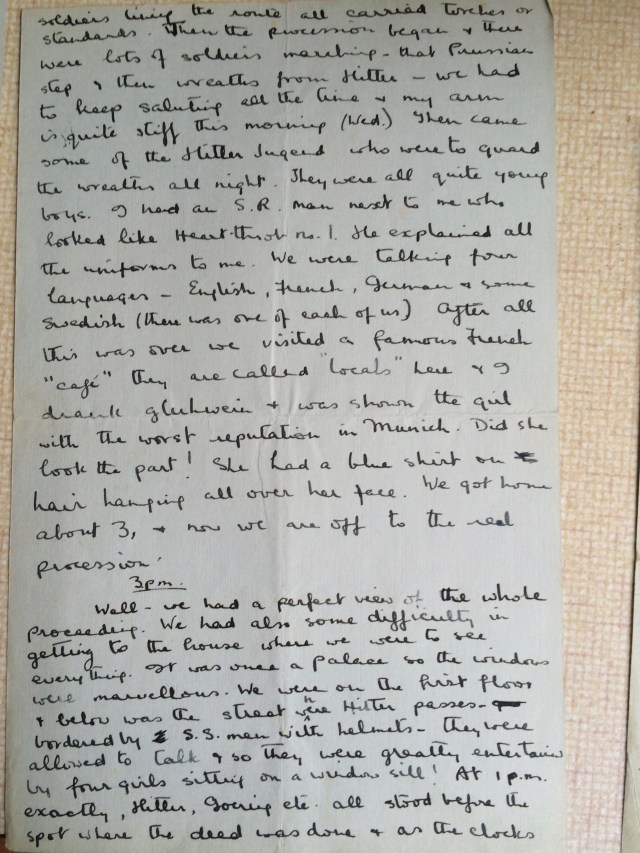 soldiers lining the route all carried torches or
standards. When the procession began & there
were lots of soldiers marching - that Prussian
step & then wreaths from Hitler - we had
to keep saluting all the time & my arm
is quite stiff this morning (Wed.) Then came
some of the Hitler Jugend who were to guard
the wreaths all night. They were all quite young
boys. I had an S.R. man next to me who
looked like Heart-throb no. 1. He explained all
the uniforms to me. We were talking four
languages - English, French, German & some
Swedish (there was one of each of us) After all
this was over we visited a famous French
"café" they are called "locals" here & I
drank gluhwein & was shown the girl
with the worst reputation in Munich. Did she
look the part! She had a blue shirt on
hair hanging all over her face. We got home
about 3, & now we are off to the real
procession.
3 p.m.
Well - we had a perfect view of the whole
proceeding. We had also some difficulty in
getting to the house where we were to see
everything. It was once a palace so the windows
were marvellous. We were on the first floor
& below was the street where Hitler passes -
bordered by S.S. men with helmets - they were
allowed to talk & so they were greatly entertained
by four girls sitting on a window sill! At 1 p.m.
exactly, Hitler, Goering etc. all stood before the
spot where the deed was done & as the clocks